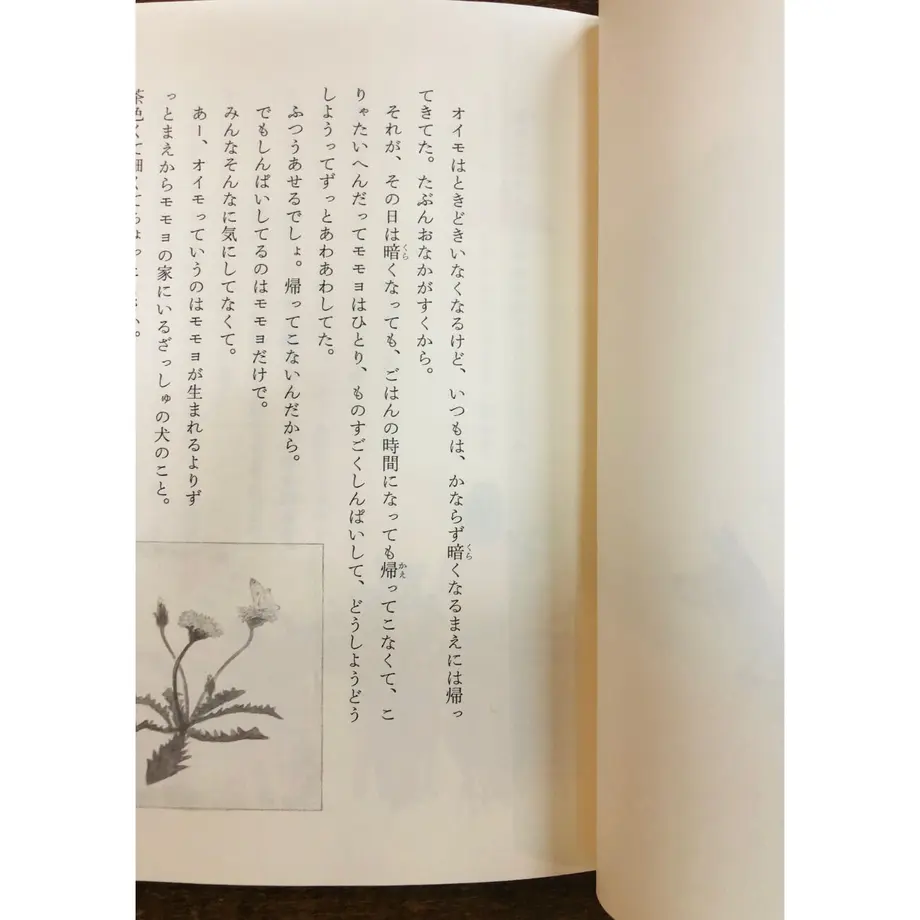 オイモはときどきいなくなるけど、いつもは、かならず暗くなるまえには帰っ
てきてた。たぶんおなかがすくから。
それが、その日は暗くなっても、ごはんの時間になっても帰ってこなくて、こ
りゃたいへんだってモモヨはひとり、ものすごくしんぱいして、どうしようどう
しようってずっとあわあわしてた。
ふつうあせるでしょ。帰ってこないんだから。
でもしんぱいしてるのはモモヨだけで。
みんなそんなに気にしてなくて。
あー、オイモっていうのはモモヨが生まれるよりず
っとまえからモモヨの家にいるざっしゅの犬のこと。
茶色くて細くてちょっと